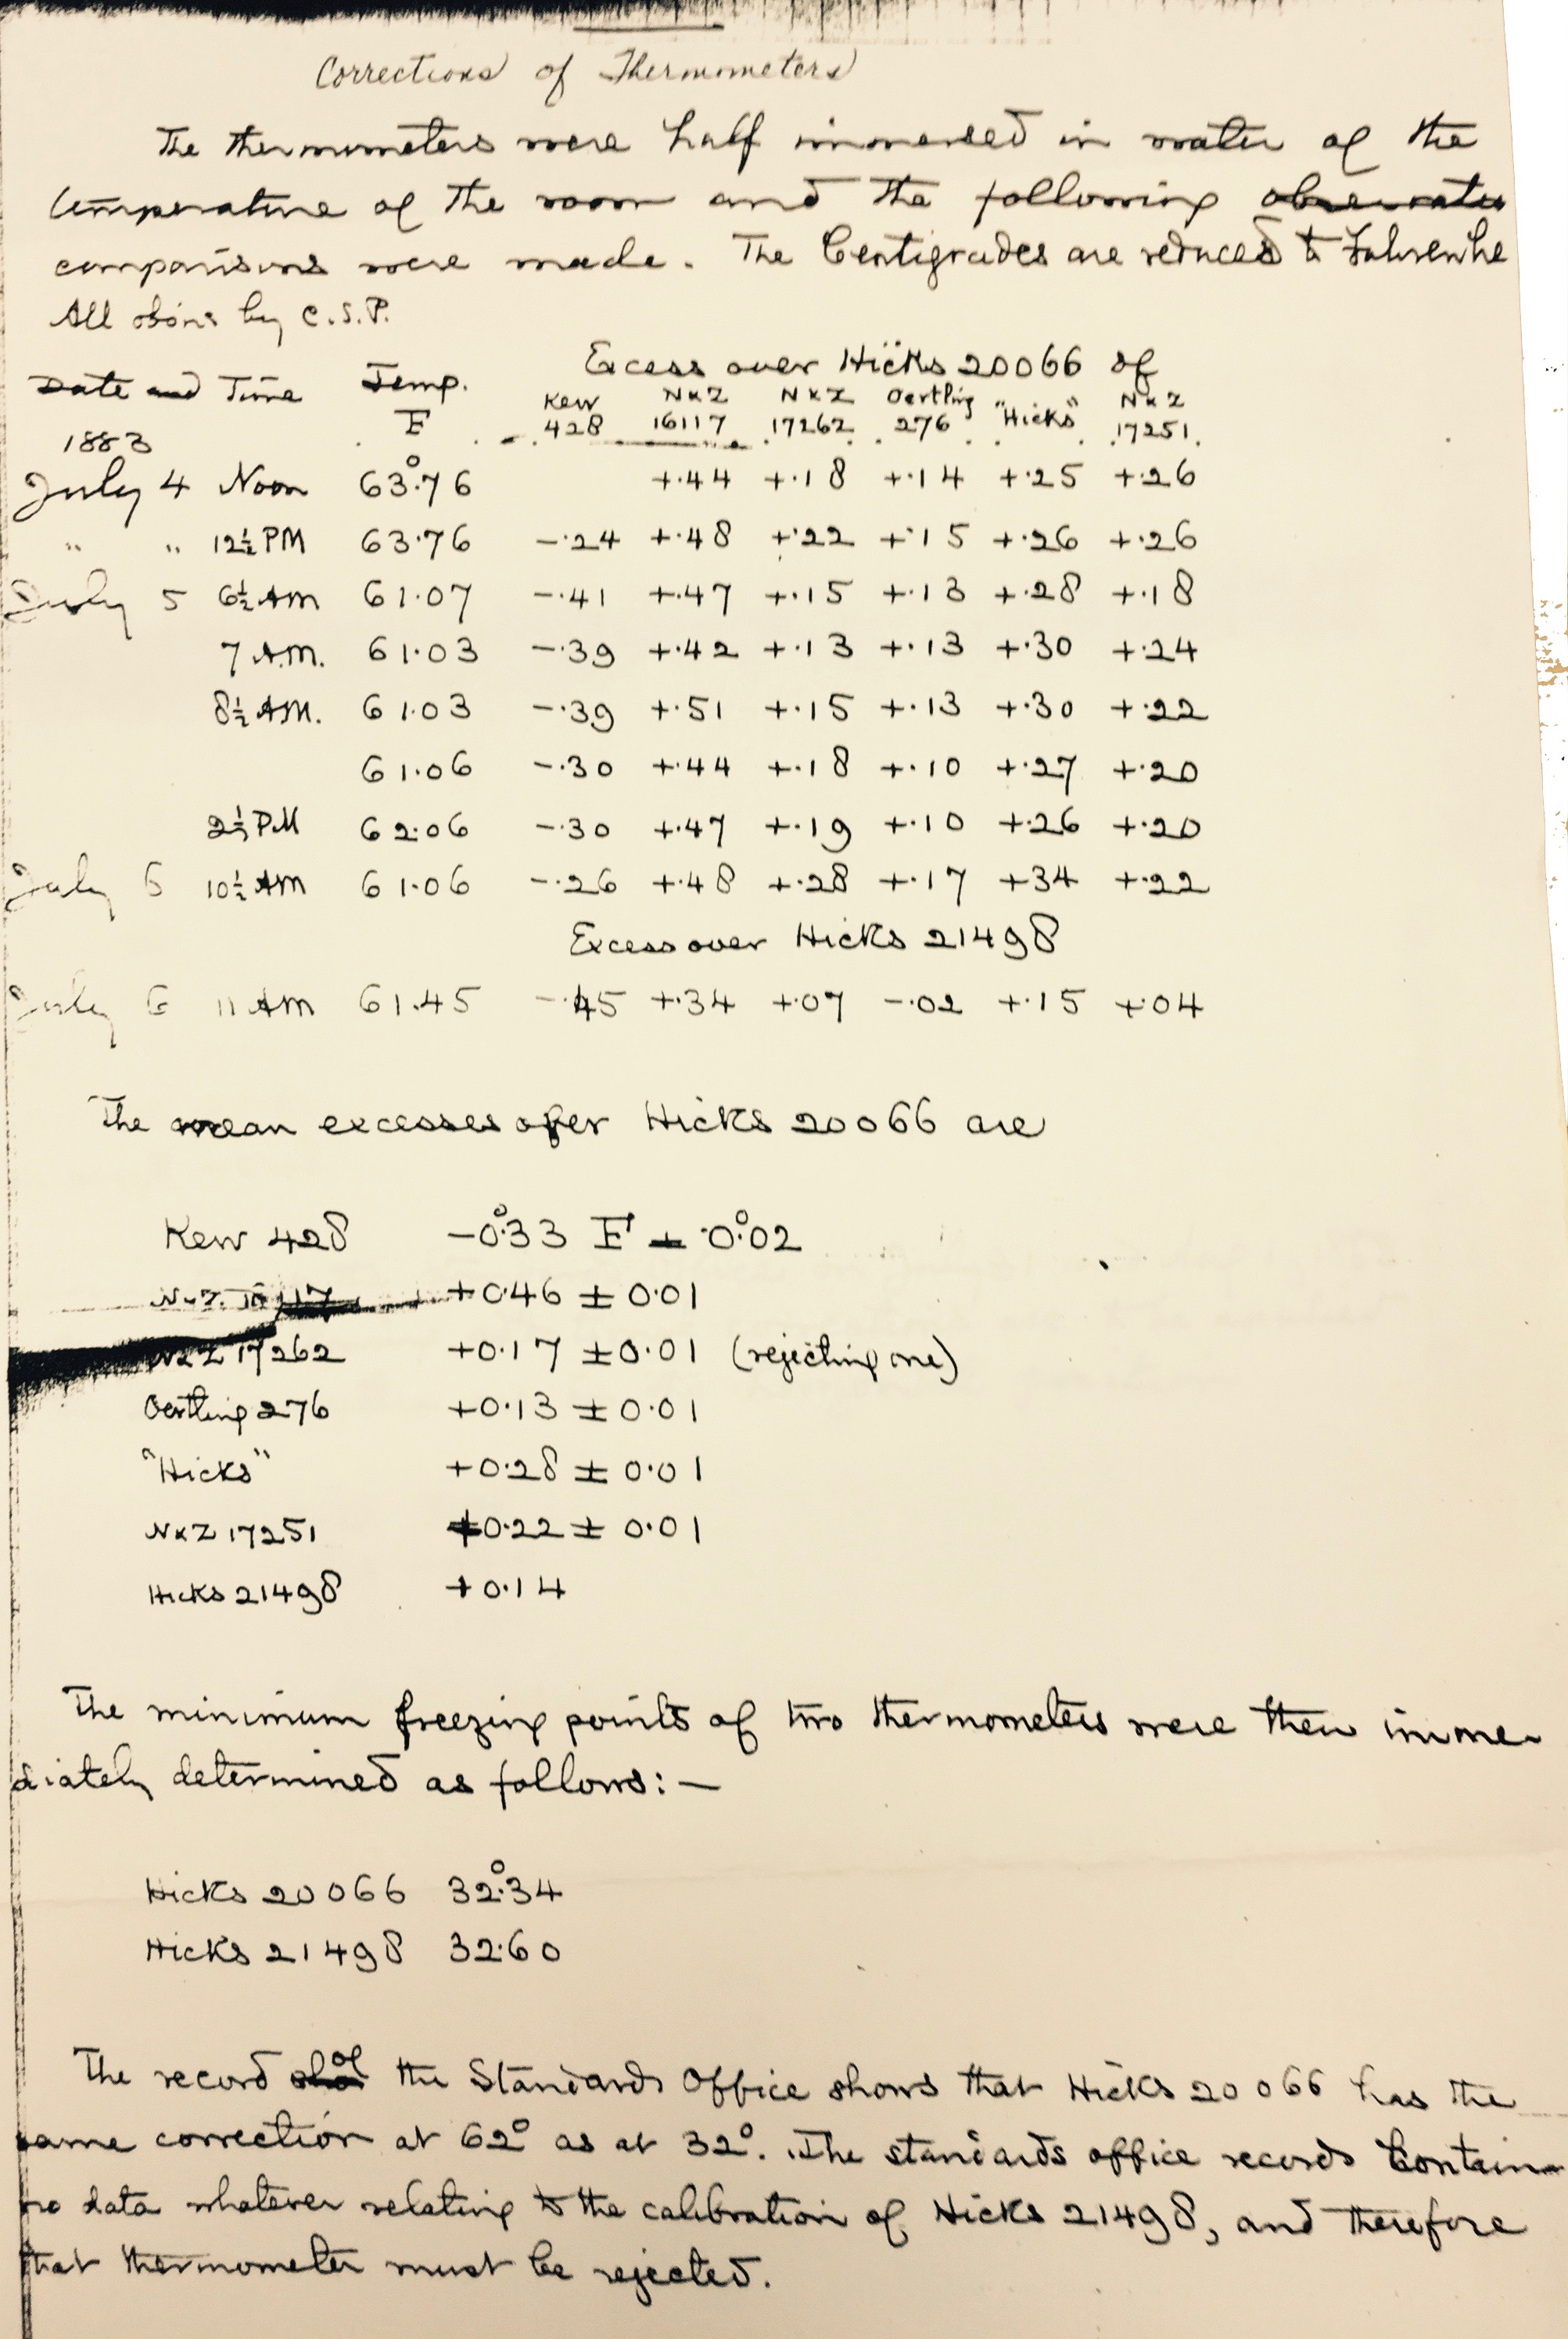 Corrections of Thermometers
The thermometers were half immersed in water of the
temperature of the room and the following observatns
comparisons were made. The Centigrades are reduced to Fahrenhe
All obsns by C.S.P.
Excess over Hicks 20066 of
Date and Time Temp. Kew N&Z N&Z Oertling "Hicks" N&Z
1883 F 428 16117 17262 276 17251
July 4 Noon 63°.76 +.44 +.18 +.14 +.25 +.26
" " 12½ PM 63.76 -.24 +.48 +.22 +.15 +.26 +.26
July 5 6½ AM 61.07 -.41 +.47 +.15 +.13 +.28 +.18
7 A.M. 61.03 -.39 +.42 +.13 +.13 +.30 +.24
8½ AM. 61.03 -.39 +.51 +.15 +.13 +.30 +.22
61.06 -.30 +.44 +.18 +.10 +.27 +.20
2½ PM 62.06 -.30 +.47 +.19 +.10 +.26 +.20
July 6 10½ AM 61.06 -.26 +.48 +.28 +.17 +34 +.22
Excess over Hicks 21498
July 6 11 AM 61.45 -.45 +.34 +.07 -.02 +.15 +.04
The mean excesses over Hicks 20066 are
Kew 428 -0°.33 F ± 0°.02
N&Z 16117 +0.46 ± 0.01
N&Z 17262 +0.17 ± 0.01 (rejecting one)
Oertling 276 +0.13 ± 0.01
"Hicks" +0.28 ± 0.01
N&Z 17251 +0.22 ± 0.01
Hicks 21498 +0.14
The minimum freezing points of two thermometers were then imme-
diately determined as follows:—
Hicks 20066 32°.34
Hicks 21498 32.60
The record of the Standards Office shows that Hicks 20066 has the
same correction at 62° as at 32°. The standards office records contain
no data whatever relating to the calibration of Hicks 21498, and therefore
that thermometer must be rejected.